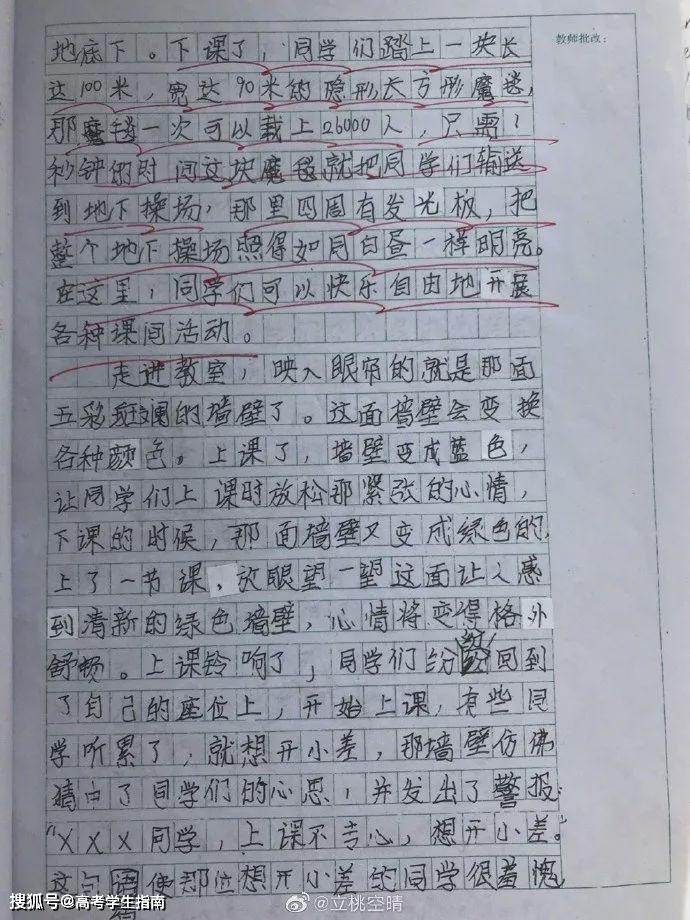 教师批改：
地底下。下课了，同学们踏上一块长
达100米，宽达90米的隐形长方形魔毯，
那魔毯一次可以载上26000人，只需1
秒钟的时间这块魔毯就把同学们输送
到地下操场，那里四周有发光板，把
整个地下操场照得如同白昼一样明亮。
在这里，同学们可以快乐自由地开展
各种课间活动。
走进教室，映入眼帘的就是那面
五彩斑斓的墙壁了。这面墙壁会变换
各种颜色。上课了，墙壁变成蓝色，
让同学们上课时放松那紧张的心情，
下课的时候，那面墙壁又变成绿色的，
上了一节课，放眼望一望这面让人感
到清新的绿色墙壁，心情将变得格外
舒顿。上课铃响了，同学们纷纷回到
了自己的座位上，开始上课，有些同
学听累了，就想开小差，那墙壁仿佛
猜中了同学们的心思，并发出了警报：
“XXX同学，上课不专心，想开小差。”
这句语使那位想开小差的同学很羞愧
搜狐号@高考学生指南
@立桃空晴